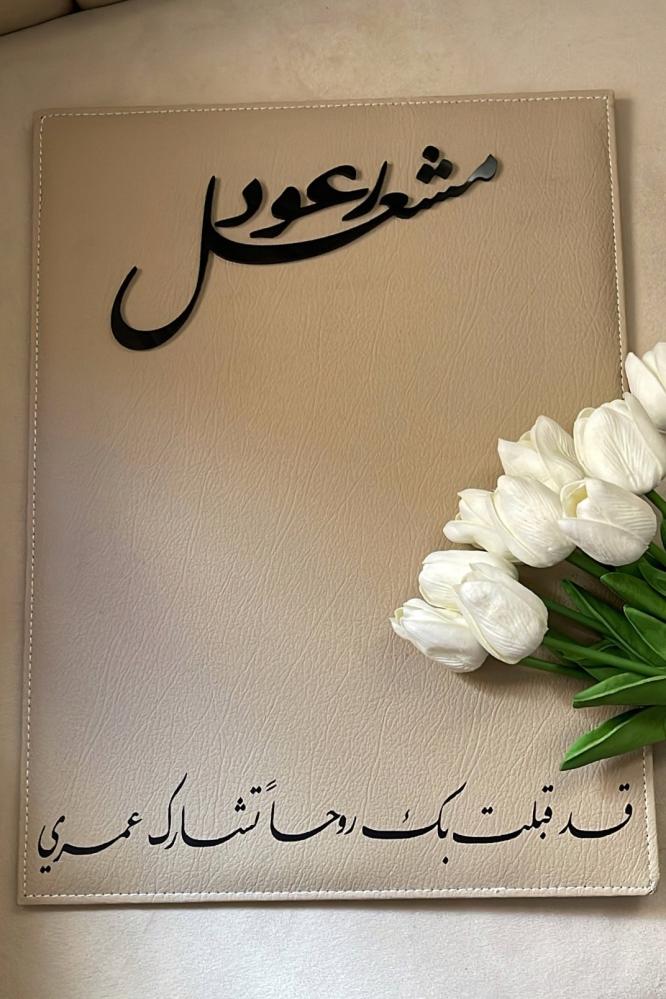 مشعل رعود
قد قبلت بك روحاً تشارك عمري